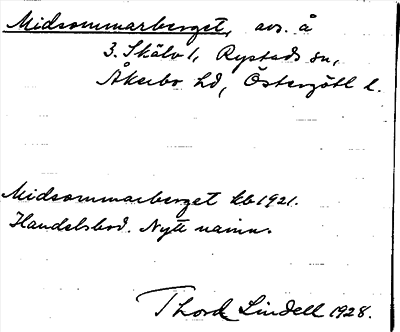 Midsommarberget, avs. å
3. Skälv 1, Rystads sn,
Åkerbo hd, Östergötl l.
Midsommarberget kb 1921.
Handelsbod. Nytt namn.
Thord Lindell 1928.